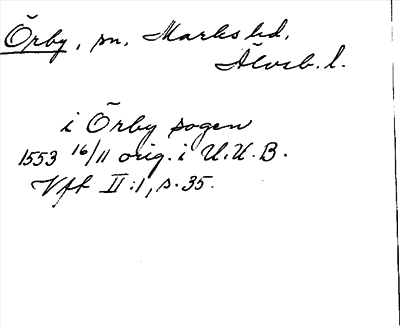 Örby, sn, Marks hd,
Älvsb. l.
i Örby sogen
1553 16/11 orig. i U.U.B.
Vft II:1, s. 35.